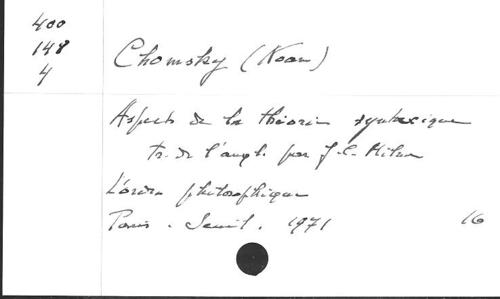 400
148
4
Chomsky (Noam)
Aspects de la théorie syntaxique
tr. de l'angl. par J.-C. Milner
L'ordre philosophique
Paris. Seuil. 1971 16